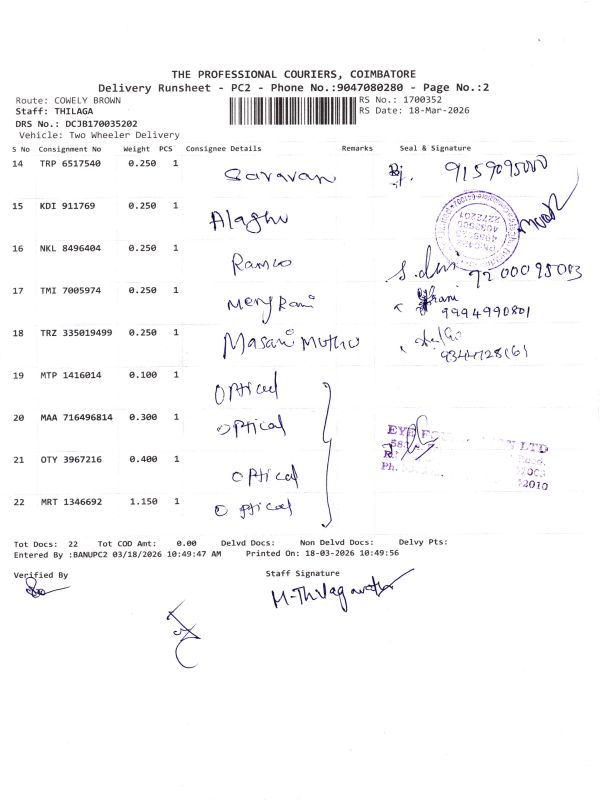 THE PROFESSIONAL COURIERS, COIMBATORE
Delivery Runsheet - PC2 - Phone No.:9047080280 - Page No.:2
Route: COWELY BROWN RS No.: 1700352
Staff: THILAGA RS Date: 18-Mar-2026
DRS No.: DCJB170035202
Vehicle: Two Wheeler Delivery
S No Consignment No Weight PCS Consignee Details Remarks Seal & Signature
14 TRP 6517540 0.250 1 Saravan
15 KDI 911769 0.250 1 Alaghu
16 NKL 8496404 0.250 1 Ramco
17 TMI 7005974 0.250 1 9994990801
18 TRZ 335019499 0.250 1
19 MTP 1416014 0.100 1 optical
20 MAA 716496814 0.300 1 optical
21 OTY 3967216 0.400 1 optical
22 MRT 1346692 1.150 1 optical
Tot Docs: 22 Tot COD Amt: 0.00 Delvd Docs: Non Delvd Docs: Delvy Pts:
Entered By :BANUPC2 03/18/2026 10:49:47 AM Printed On: 18-03-2026 10:49:56
Verified By Staff Signature